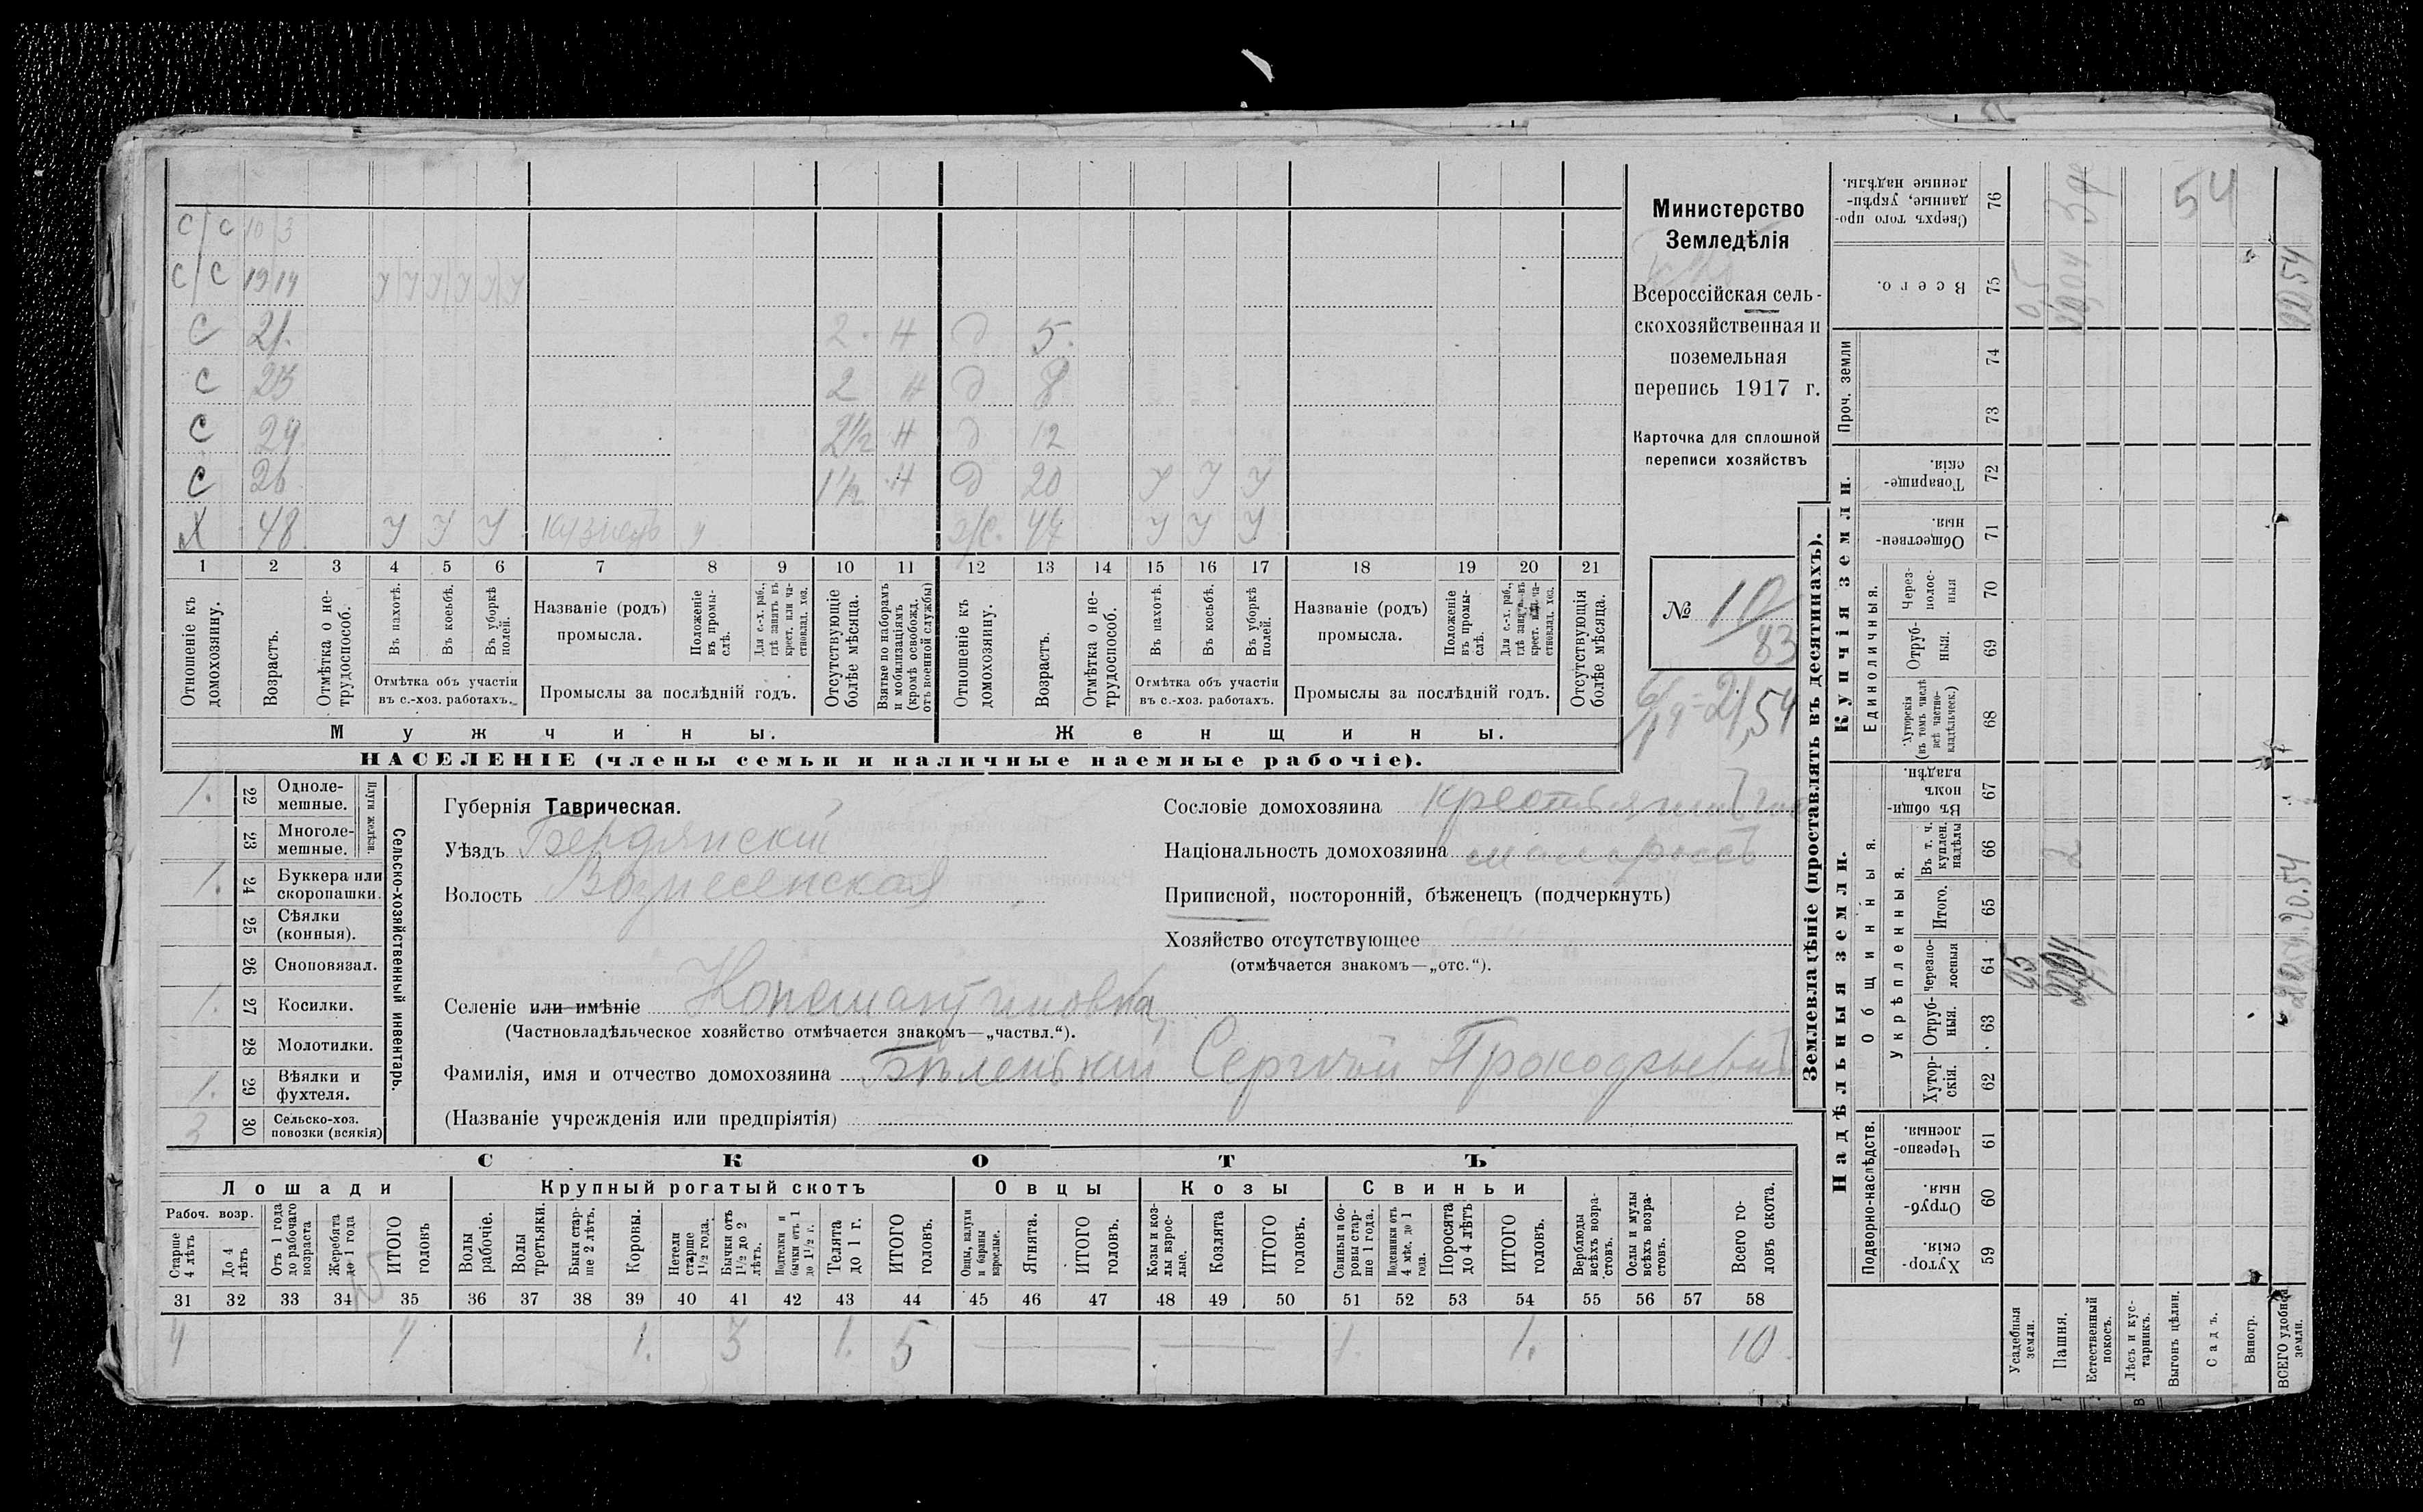 Министерство
Земледѣлія
Всероссійская сель-
скохозяйственная и
поземельная
перепись 1917 г.
Карточка для сплошной
переписи хозяйствъ
№ 10/83
6/19 = 21,54
С/С 10 3
С/С 19 14 У У У У У У
С 21. 2. Н Д 5.
С 23 2 Н Д 8
С 24 2½ Н Д 12
С 26 1½ Н Д 20 У У У
Х 48 У У У кузнецъ 47 У У У
1 2 3 4 5 6 7 8 9 10 11 12 13 14 15 16 17 18 19 20 21
Отношеніе къ домохозяину.
Возрастъ.
Отмѣтка о не-трудоспособ.
Въ пахотѣ.
Въ косьбѣ.
Въ уборкѣ полей.
Отмѣтка объ участіи въ с.-хоз. работахъ.
Названіе (родъ) промысла.
Положеніе въ промы-слѣ.
Для с.-х. раб., гдѣ занятъ въ крест. или ча-стновлад. хоз.
Промыслы за послѣдній годъ.
Отсутствующіе болѣе мѣсяца.
Взятые по наборамъ и мобилизаціямъ (кромѣ освобожд. отъ военной службы)
Отношеніе къ домохозяину.
Возрастъ.
Отмѣтка о не-трудоспособ.
Въ пахотѣ.
Въ косьбѣ.
Въ уборкѣ полей.
Отмѣтка объ участіи въ с.-хоз. работахъ.
Названіе (родъ) промысла.
Положеніе въ промы-слѣ.
Для с.-х. раб., гдѣ занятъ въ крест. или ча-стновлад. хоз.
Промыслы за послѣдній годъ.
Отсутствующія болѣе мѣсяца.
Мужчины. Женщины.
НАСЕЛЕНІЕ (члены семьи и наличные наемные рабочіе).
Сельско-хозяйственный инвентарь.
Плуги желѣзн.
1. 22 Одноле-мешные.
23 Многоле-мешные.
1. 24 Буккера или скоропашки.
25 Сѣялки (конныя).
26 Сноповязал.
1. 27 Косилки.
28 Молотилки.
1. 29 Вѣялки и фухтеля.
3 30 Сельско-хоз. повозки (всякія)
Губернія Таврическая.
Уѣздъ Бердянскій
Волость Вознесенская
Сословіе домохозяина крестьянинъ
Національность домохозяина малороссъ
Приписной, посторонній, бѣженецъ (подчеркнуть)
Хозяйство отсутствующее
(отмѣчается знакомъ—„отс.“).
Селеніе или имѣніе Константиновка
(Частновладѣльческое хозяйство отмѣчается знакомъ—„частвл.“).
Фамилія, имя и отчество домохозяина Бѣленькій Сергѣй Прокофьевич
(Названіе учрежденія или предпріятія)
СКОТЪ
Лошади Крупный рогатый скотъ Овцы Козы Свиньи
Рабоч. возр.
Старше 4 лѣтъ
До 4 лѣтъ
Отъ 1 года до рабочаго возраста
Жеребята до 1 года
ИТОГО головъ
Волы рабочіе.
Волы третьяки.
Быки стар-ше 2 лѣтъ.
Коровы.
Нетели старше 1½ года.
Бычки отъ 1½ до 2 лѣтъ.
Подтелки и бычки отъ 1 до 1½ г.
Телята до 1 г.
ИТОГО головъ.
Овцы, валухи и бараны взрослые.
Ягнята.
ИТОГО головъ.
Козы и коз-лы взрос-лые.
Козлята
ИТОГО головъ.
Свиньи и бо-ровы стар-ше 1 года.
Подсвинки отъ 4 мѣс. до 1 года.
Поросята до 4 лѣтъ
ИТОГО головъ.
Верблюды всѣхъ возра-стовъ.
Ослы и мулы всѣхъ возра-стовъ.
Всего го-ловъ скота.
31 32 33 34 35 36 37 38 39 40 41 42 43 44 45 46 47 48 49 50 51 52 53 54 55 56 57 58
4 4 1. 3 1. 5 — — 1. 1. 10
Землевладѣніе (проставлять въ десятинахъ).
Купчія земли.
Надѣльныя земли.
Сверхъ того про-данные, укрѣп-ленные надѣлы. 76
Всего. 75
Проч. земли 74 73
Товарище-скія. 72
Обществен-ныя. 71
Единоличныя.
Через-полос-ныя 70
Отруб-ныя. 69
Хуторскія (въ томъ числѣ всѣ частно-владѣльческ.) 68
Общинныя.
Въ общи-номъ владѣн. 67
Укрѣпленныя.
Въ т. ч. куплен. надѣлы 66
Итого. 65
черезпо-лосныя 64
Отруб-ныя. 63
Хутор-скія. 62
Подворно-наслѣдств.
Черезпо-лосныя. 61
Отруб-ныя. 60
Хутор-скія. 59
Усадебныя земли.
Пашня.
Естественный покосъ.
Лѣсъ и кус-тарникъ.
Выгонъ цѣлин.
Садъ.
Виногр.
ВСЕГО удобной земли.
0,5
2
54
20.54